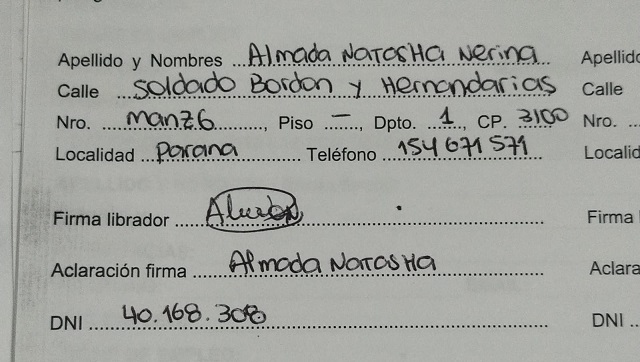 Apellido y Nombres Almada Natasha Nerina Apellido
Calle Soldado Bordon y Hernandarias Calle
Nro. manz6, Piso —, Dpto. 1, CP. 3100 Nro.
Localidad Parana Teléfono 154 671 571 Localid
Firma librador Firma
Aclaración firma Almada Natasha Aclara
DNI 40.168.308 DNI